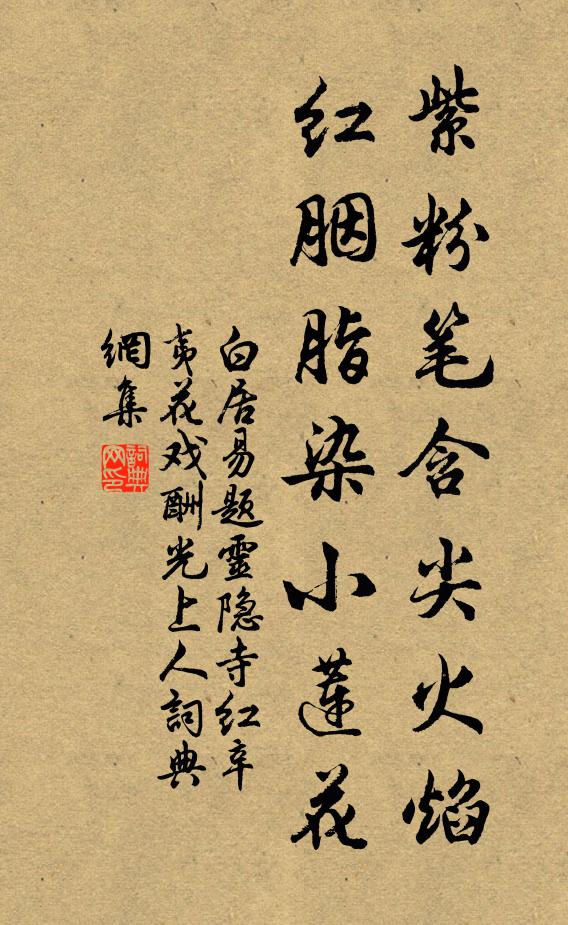 紫粉笔含尖火焰
红胭脂染小莲花
白居易题靈隐寺红辛
夷花戏酬光上人詞典
網集
詞典
网印